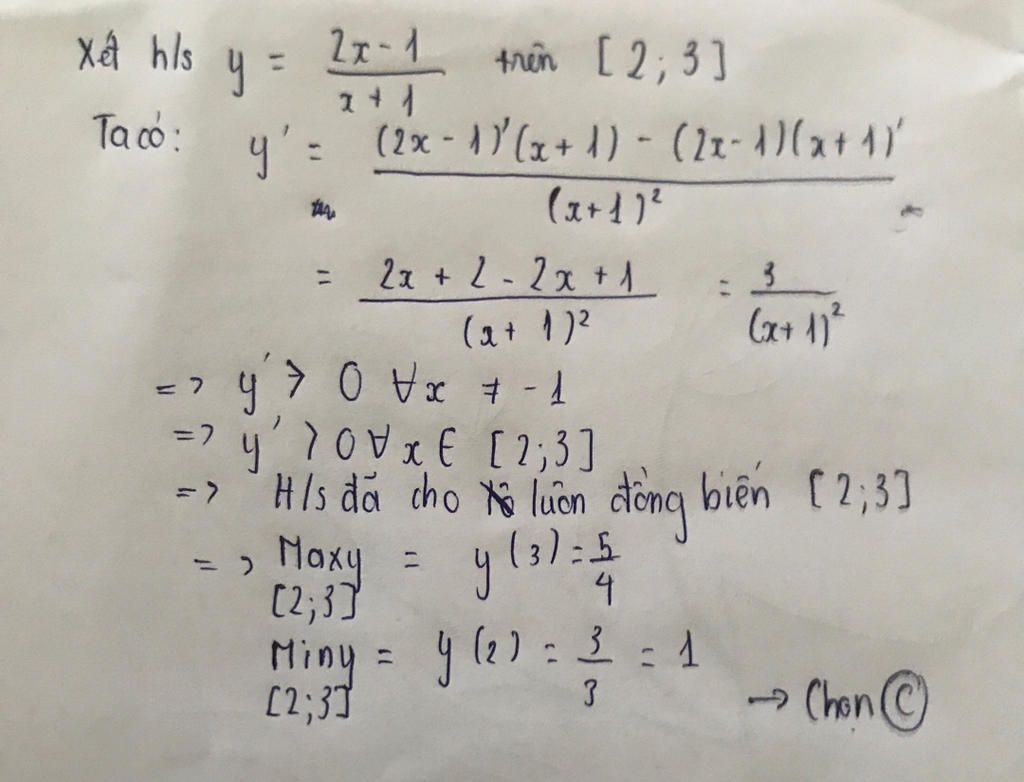 Xét h/s y = \frac{2x-1}{x+1} trên [2;3]
Ta có: y' = \frac{(2x-1)'(x+1) - (2x-1)(x+1)'}{(x+1)^2}
= \frac{2x+2-2x+1}{(x+1)^2} = \frac{3}{(x+1)^2}
=> y' > 0 ∀x ≠ -1
=> y' > 0 ∀x ∈ [2;3]
=> H/s đã cho luôn đồng biến [2;3]
=> Maxy = y(3) = \frac{5}{4}
[2;3]
Miny = y(2) = \frac{3}{3} = 1
[2;3] → Chọn C